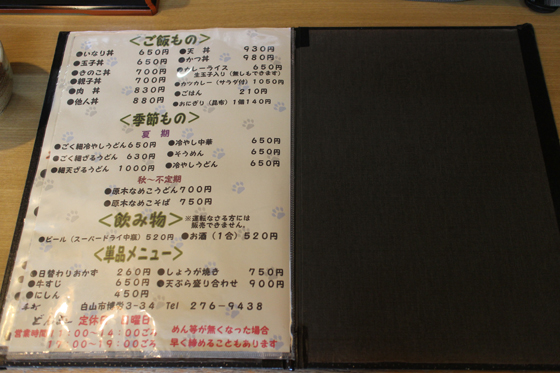 ＜ご飯もの＞
●いなり丼 650円 ●天丼 930円
●玉子丼 650円 ●かつ丼 980円
●きのこ丼 700円 ●カレーライス 650円
生玉子入り（無しもできます）
●親子丼 700円 ●カツカレー（サラダ付）1050円
●肉丼 830円 ●ごはん 210円
●他人丼 880円 ●おにぎり（昆布）1個140円
＜季節もの＞
夏期
●ごく細冷やしうどん650円 ●冷やし中華 650円
●ごく細ざるうどん 630円 ●そうめん 650円
●細天ざるうどん 1000円 ●冷やしうどん 650円
秋～不定期
●原木なめこうどん700円
●原木なめこそば 750円
＜飲み物＞ ※運転なさる方には
販売できません。
●ビール（スーパードライ中瓶）520円 ●お酒（1合）520円
＜単品メニュー＞
●日替わりおかず 260円 ●しょうが焼き 750円
●牛すじ 650円 ●天ぷら盛り合わせ 900円
●にしん 450円
白山市博労3-34 Tel 276-9438
定休日 日曜日
めん等が無くなった場合
営業時間 11:00～14:00ごろ
早く締めることもあります
17:00～19:00ごろ